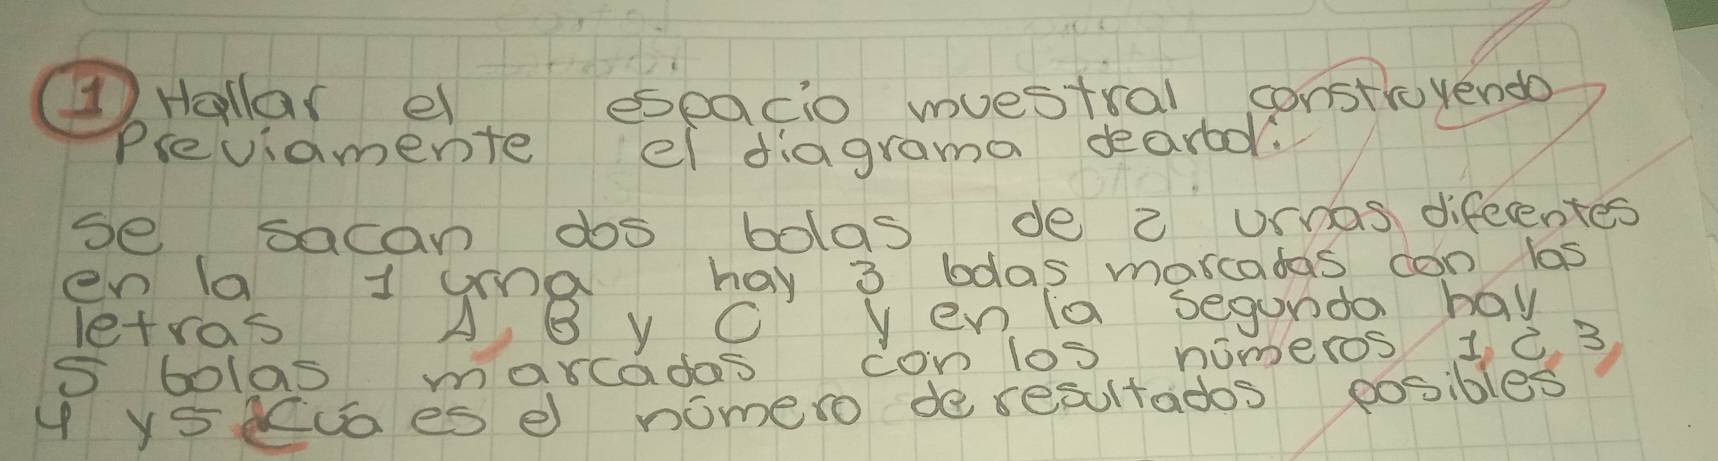 1) Hallar el espacio muestral construyendo
Previamente el diagrama dearbol:
se sacan dos bolas de 2 urnas diferentes
en la 1 urna hay 3 bolas marcadas con las
letras A, B y C y en la segunda hay
5 bolas marcadas con los números 1, 2, 3,
4 y 5 ¿Cua es el número de resultados posibles